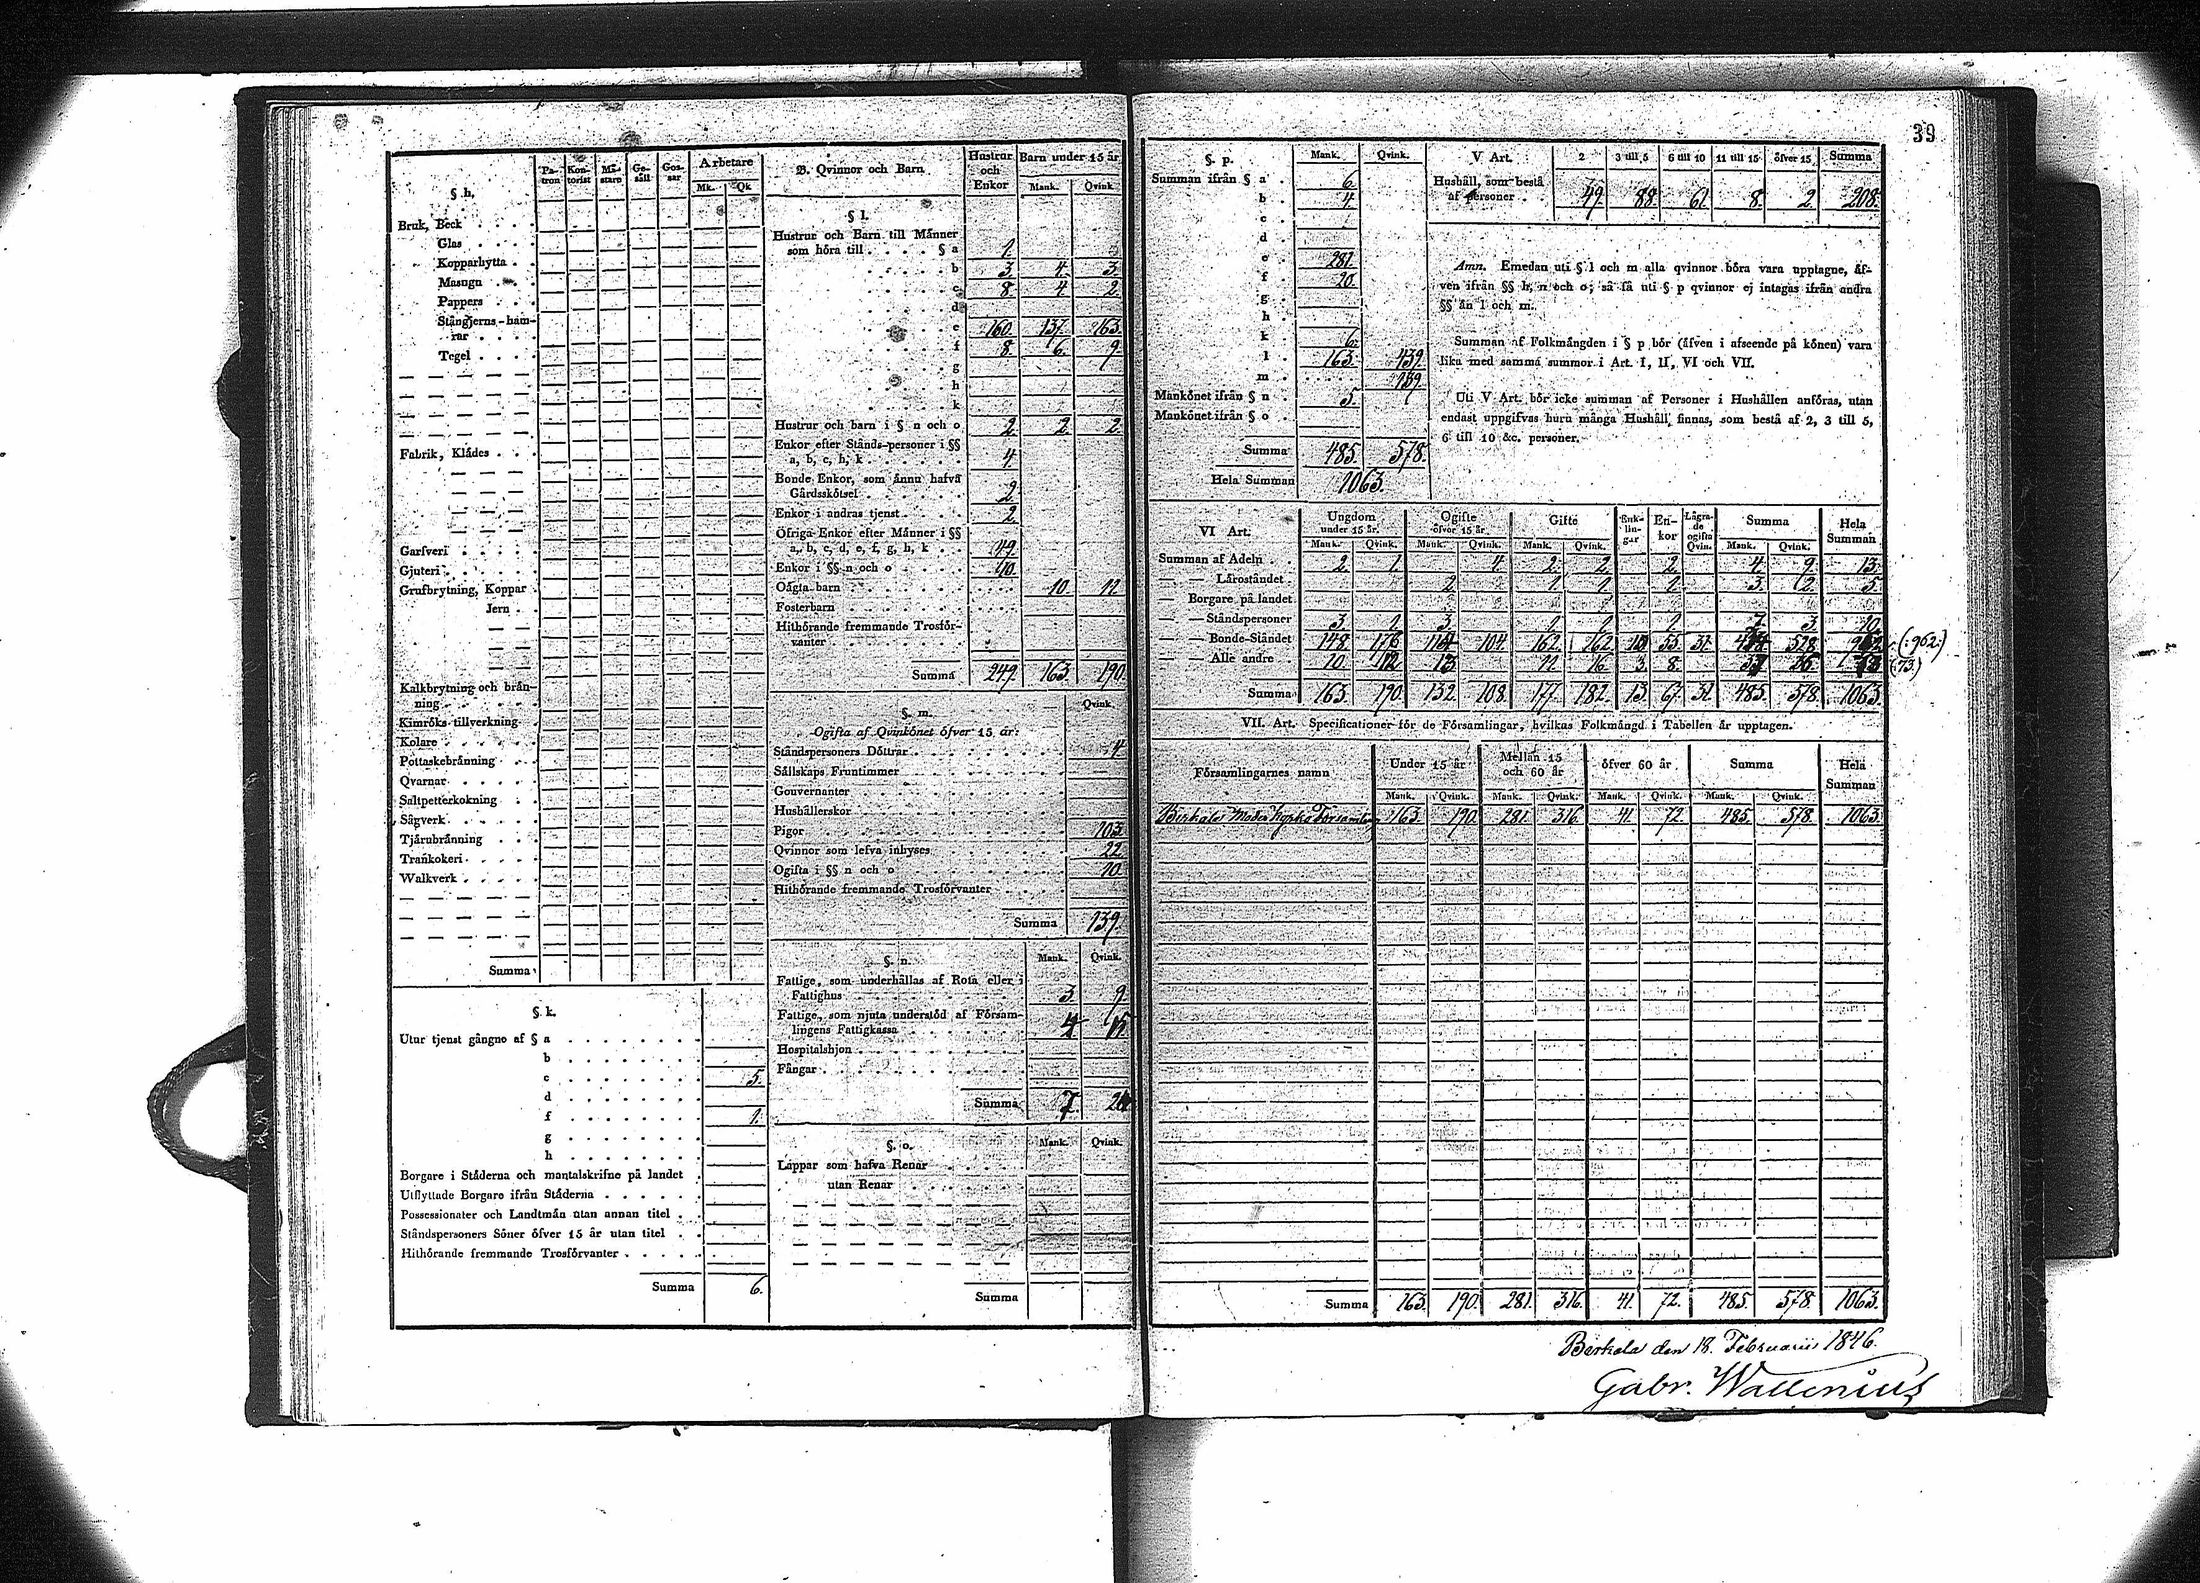 39
§ h.
Patron Kontorist Mästare Gesäll Gossar Arbetare
Mk. Qk
Bruk, Beck
Glas
Kopparhytta
Masugn
Pappers
Stångjerns-hamrar
Tegel
Fabrik, Klädes
Garfveri
Gjuteri
Grufbrytning, Koppar
Jern
Kalkbrytning och bränning
Kimröks tillverkning
Kolare
Pottaskebränning
Qvarnar
Saltpetterkokning
Sågverk
Tjärubränning
Trankokeri
Walkverk
Summa
§. k.
Utur tjenst gångne af § a
b
c 5.
d
f 1.
g
h
Borgare i Städerna och mantalskrifne på landet
Utflyttade Borgare ifrån Städerna
Possessionater och Landtmän utan annan titel
Ståndspersoners Söner öfver 15 år utan titel
Hithörande fremmande Trosförvanter
Summa 6.
B. Qvinnor och Barn
Hustrur och Enkor Barn under 15 år
Mank. Qvink.
§ l.
Hustrur och Barn till Männer
som höra till § a 1.
b 3. 4. 3.
c 8. 4. 2.
d
e 160. 137. 163.
f 8. 6. 9.
g
h
k
Hustrur och barn i § n och o 2. 2. 2.
Enkor efter Stånds-personer i §§
a, b, c, h, k 4.
Bonde Enkor, som ännu hafva
Gårdsskötsel 2.
Enkor i andras tjenst 2.
Öfriga Enkor efter Männer i §§
a, b, c, d, e, f, g, h, k 49.
Enkor i §§ n och o 10.
Oägta barn 10. 11.
Fosterbarn
Hithörande fremmande Trosförvanter
Summa 249. 163. 190.
§. m. Qvink.
Ogifta af Qvinkönet öfver 15 år:
Ståndspersoners Döttrar 4.
Sällskaps Fruntimmer
Gouvernanter
Hushållerskor
Pigor 103.
Qvinnor som lefva inhyses 22.
Ogifta i §§ n och o 10.
Hithörande fremmande Trosförvanter
Summa 139.
§. n. Mank. Qvink.
Fattige, som underhållas af Rota eller i
Fattighus 3. 9.
Fattige, som njuta understöd af Församlingens Fattigkassa 4. 15.
Hospitalshjon
Fångar
Summa 7.
§. o. Mank. Qvink.
Lappar som hafva Renar
utan Renar
Summa
§. p. Mank. Qvink.
Summan ifrån § a 6.
b 4.
c
d
e 281.
f 20.
g
h
k 6.
l 163. 439.
m 139.
Mankönet ifrån § n 5.
Mankönet ifrån § o
Summa 485. 578.
Hela Summan 1063.
V Art. 2 3 till 5 6 till 10 11 till 15 öfver 15 Summa
Hushåll, som bestå
af personer 49. 88. 61. 8. 2. 208.
Anm. Emedan uti § l och m alla qvinnor böra vara upptagne, äfven ifrån §§ h, n och o; så få uti § p qvinnor ej intagas ifrån andra
§§ än l och m.
Summan af Folkmängden i § p bör (äfven i afseende på könen) vara
lika med samma summor i Art. I, II, VI och VII.
Uti V Art. bör icke summan af Personer i Hushållen anföras, utan
endast uppgifvas huru många Hushåll finnas, som bestå af 2, 3 till 5,
6 till 10 &c. personer.
VI Art. Ungdom under 15 år. Ogifte öfver 15 år. Gifte Enklingar Enkor Lägrade ogifta Qvin. Summa Hela Summan
Mank. Qvink. Mank. Qvink. Mank. Qvink. Mank. Qvink.
Summan af Adeln 2. 1. 4. 2. 2. 2. 4. 9. 13.
Läroståndet 2. 1. 1. 1. 3. 2. 5.
Borgare på landet
Ståndspersoner 3. 1. 3. 1. 1. 1. 7. 3. 10.
Bonde-Ståndet 148. 176. 114. 104. 162. 162. 10. 55. 31. 528. (:962:)
Alle andre 10. 12. 13. 11. 16. 3. 8. (73.)
Summa 163. 190. 132. 108. 177. 182. 13. 67. 31. 485. 578. 1063.
VII. Art. Specificationer för de Församlingar, hvilkas Folkmängd i Tabellen är upptagen.
Församlingarnes namn Under 15 år Mellan 15 och 60 år öfver 60 år Summa Hela Summan
Mank. Qvink. Mank. Qvink. Mank. Qvink. Mank. Qvink.
Birkala Moder Kyrko Församling 163. 190. 281. 316. 41. 72. 485. 578. 1063.
Summa 163. 190. 281. 316. 41. 72. 485. 578. 1063.
Birkala den 18. Februarii 1846.
Gabr. Wallenius